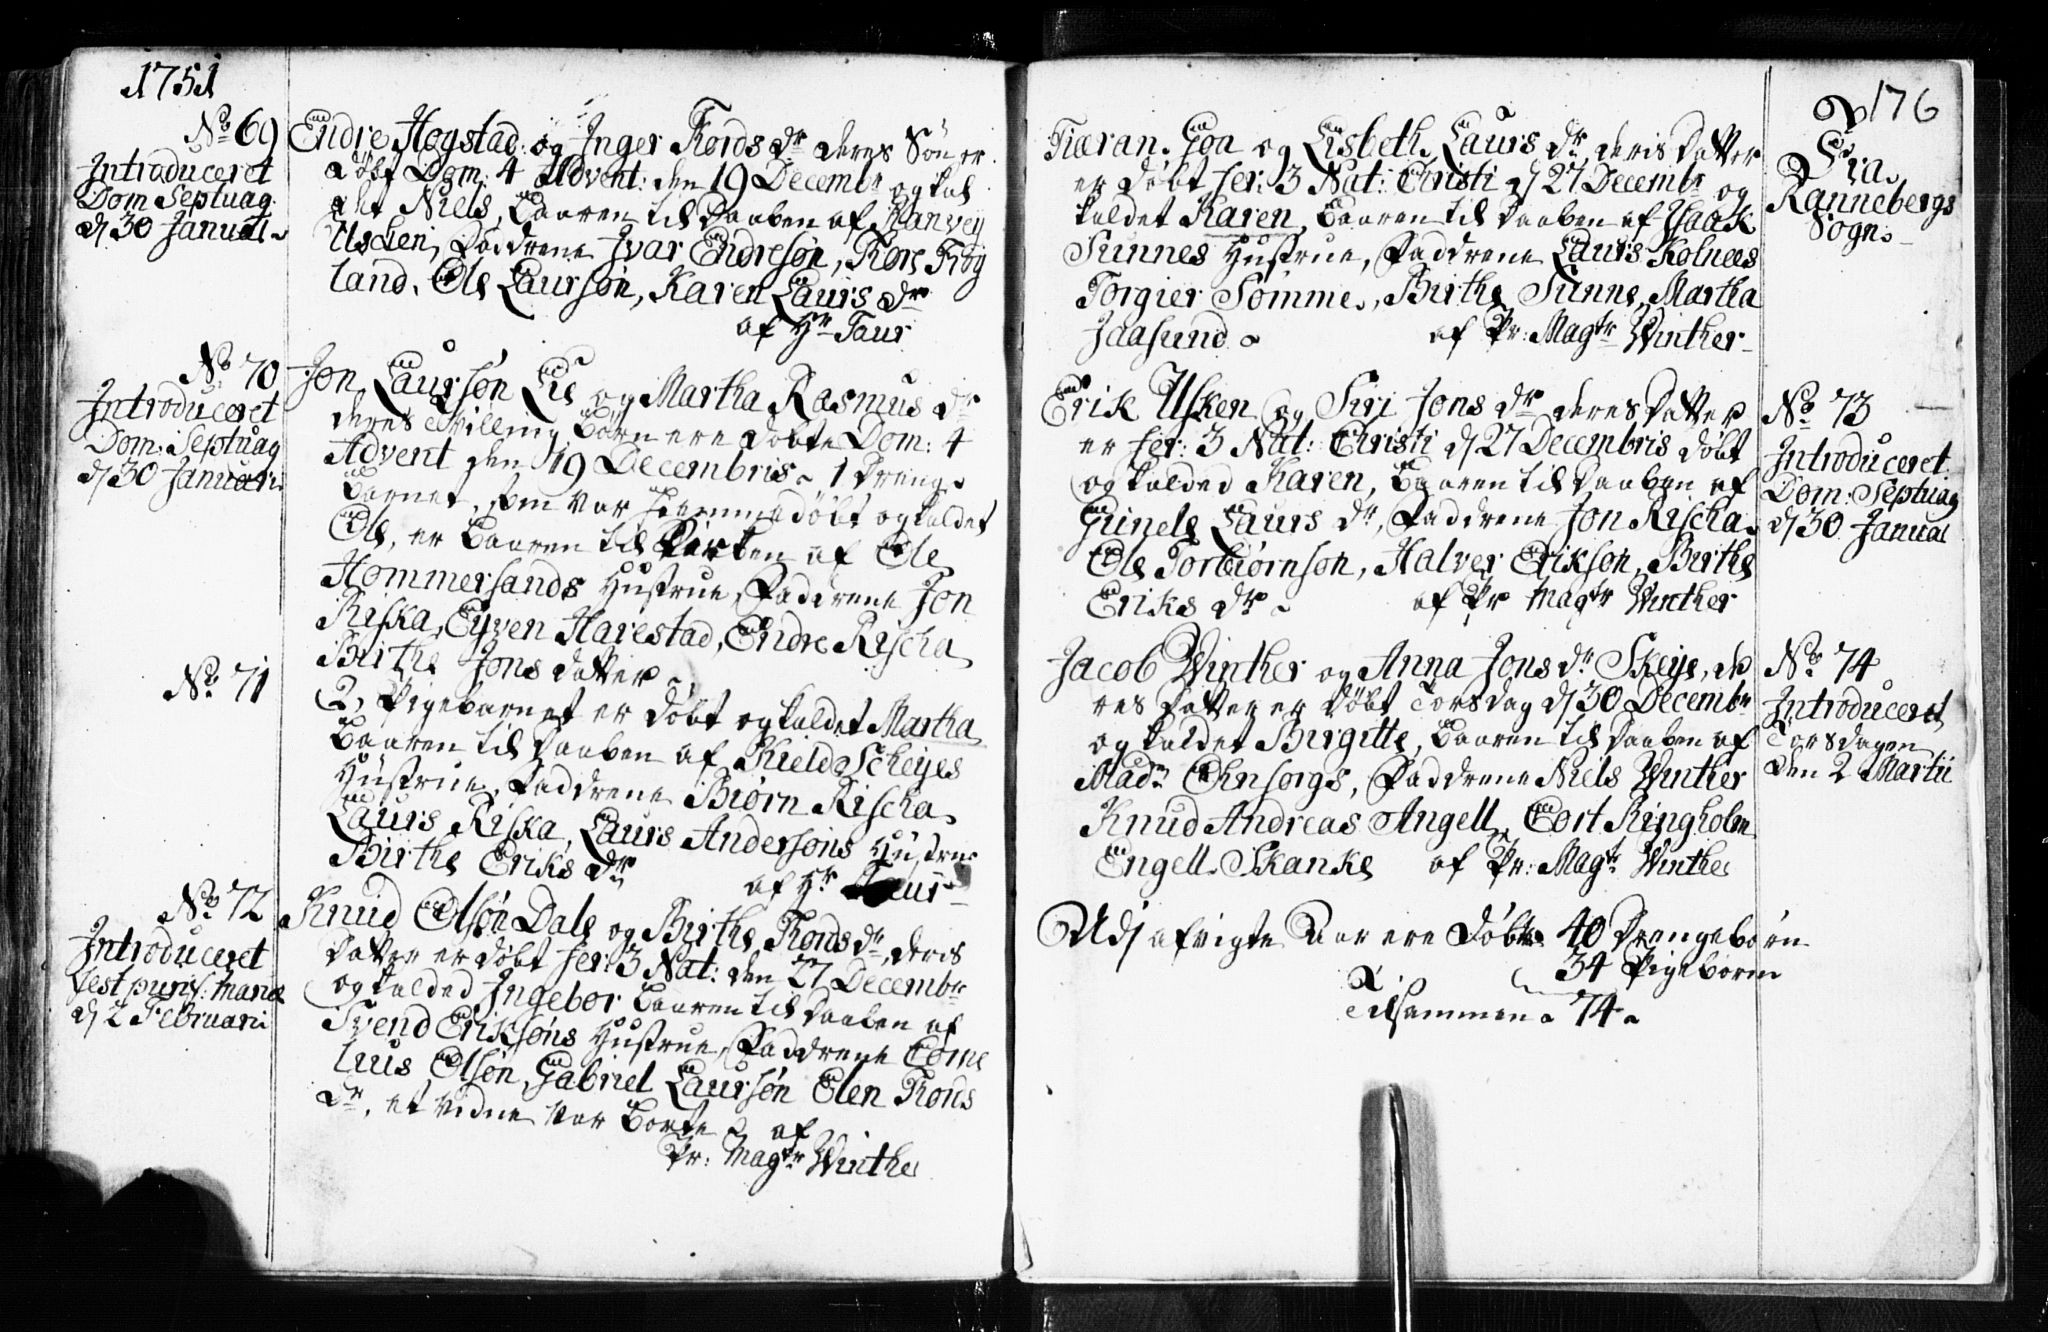 1751
No 69
Introduceret
Dom Septuag:
d/ 30 Januari
Endre Høgstad og Inger Tords dr deres Søn er
døbt Dom: 4 Advent: den 19 Decembr og kal
det Niels, baaren til daaben af Ranvey
Uschen, Faddrene Ivar Endresøn, Tore Høg
land, Ole Laursøn, Karen Laurs dr
af Hr Taur
No 70
Introduceret
Dom: Septuag
d/ 30 Januari
Jon Laursøn Lie og Martha Rasmus dr
deres Tvilling Børn ere døbte Dom: 4
Advent den 19 Decembris. 1 Drenge
Barnet, som var hiemmedøbt og kaldet
Ole, er baaren til Kirken af Ole
Hommersands Hustrue, Faddrene Jon
Riska, Eyven Harestad, Endre Rischa
Birthe Jons datter
No 71
2, Pigebarnet er døbt og kaldet Martha
baaren til daaben af Kield Scheyes
Hustrue, Faddrene Biørn Rischa
Laurs Riska, Laurs Andersøns Hustrue
Birthe Eriks dr
af Hr Taur
No 72
Introduceret
fest purif: Mariæ
d/ 2 Februarii
Knud Olsøn Dale og Birthe Tords dr, deris
datter er døbt fer: 3 Nat: den 27 Decembr
og kalded Ingebor baaren til daaben af
Svend Eriksøns Hustrue, Faddrene Corne
lius Olsøn, Gabriel Laursøn Elen Tords
dr, et vidne var borte af
Pr: Magtr Winther
176
Fra
Rannebergs
Sogn
Tiæran Goa og Lisbeth Laurs dr, deris datter
er døbt fer: 3 Nat: Christi d/ 27 Decembr og
kaldet Karen, baaren til daaben af Isaak
Sunnes Hustrue, Faddrene Laurs Kolnees
Torgier Sømme, Birthe Sunne, Martha
Jaasund af Pr: Magtr Winther
No 73
Introduceret
Dom: Septuag
d/ 30 Januar
Erik Usken og Siri Jons dr deres datter
er fer: 3 Nat: Christi d/ 27 Decembris døbt
og kalded Karen, baaren til daaben af
Gunele Laurs dr, Faddrene Jon Rischa
Ole Torbiørnsøn, Halver Eriksøn, Birthe
Eriks dr af Pr Magtr Winther
No 74
Introduceret
Torsdagen
den 2 Martii
Jacob Winther og Anna Jons dr Skeye, de
res datter er døbt Torsdag d/ 30 Decembr
og kaldet Birgitte, baaren til daaben af
Madm Ohnsorgs, Faddrene Niels Winther
Knud Andreas Angell, Cort Ringholm
Engell Skanke af Pr: Magtr Winther
Udj afvigte Aar ere døbte 40 Drengebørn
34 Pigebørn
Tilsammen 74